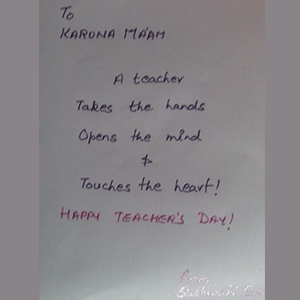 To
KARUNA MA'AM
A teacher
Takes the hands
Opens the mind
&
Touches the heart!
HAPPY TEACHER'S DAY!